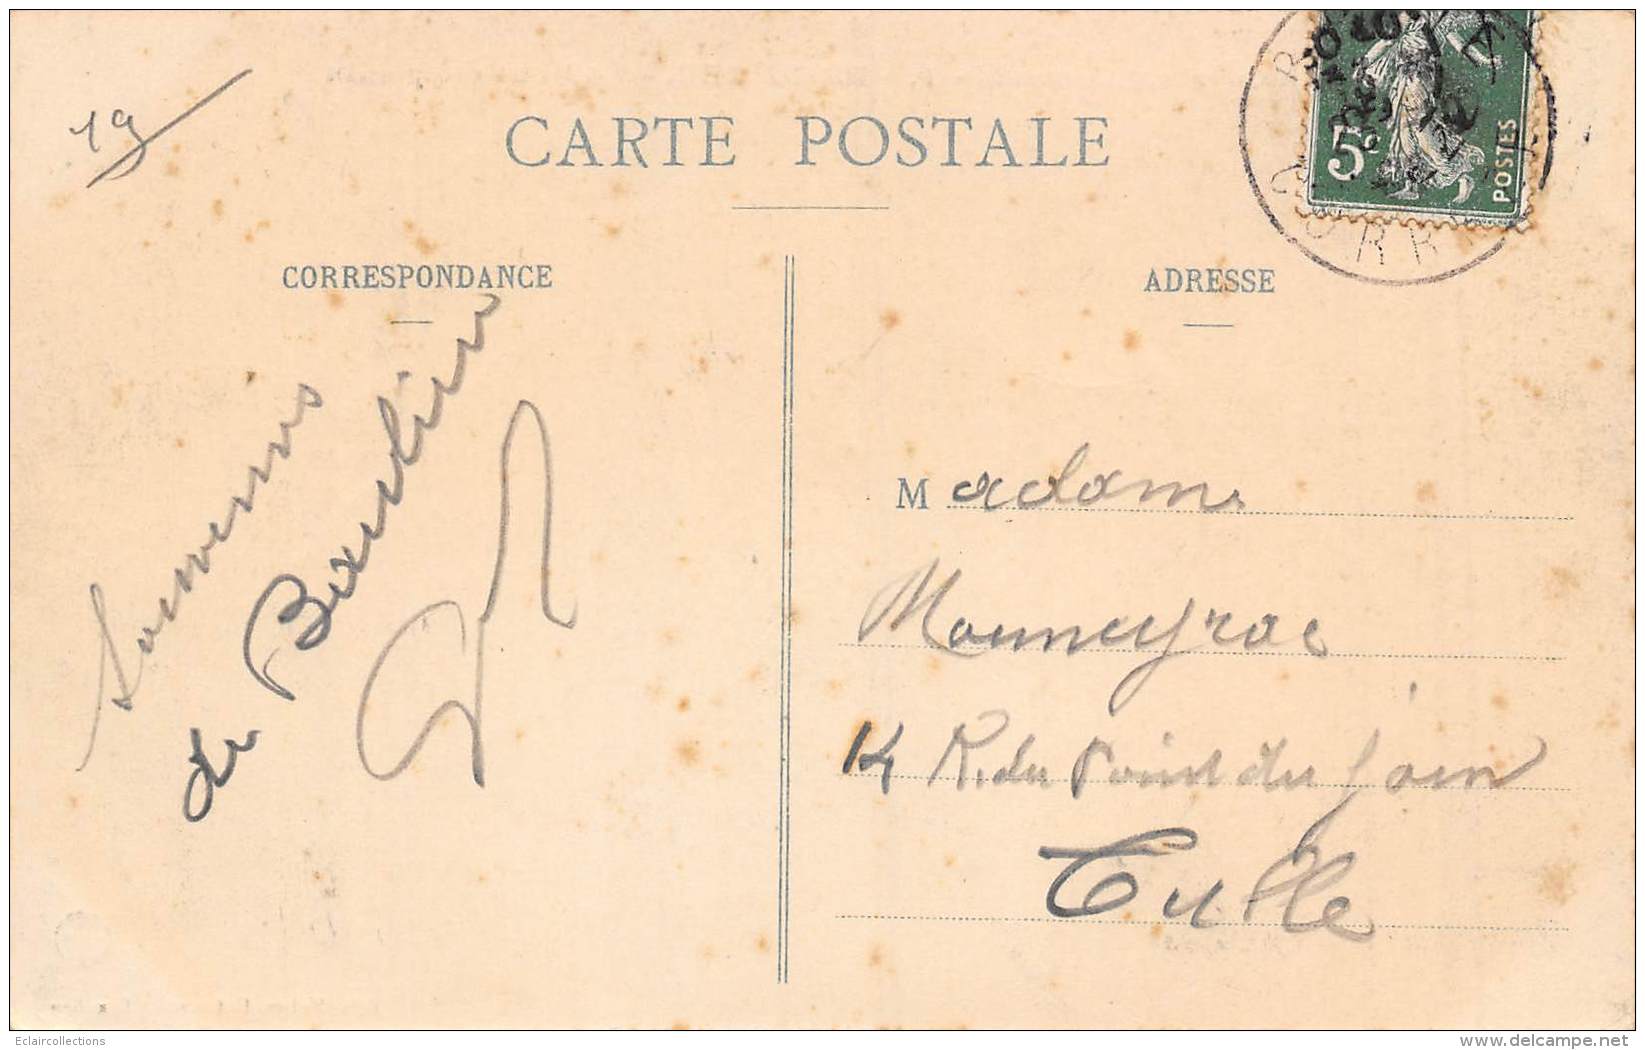 19
CARTE POSTALE
5c
POSTES
CORRESPONDANCE
ADRESSE
Souvenirs
de Beaulieu
Madame
Monneyrac
14 R. du Point du jour
Tulle
Eclaircollections
delcampe.net